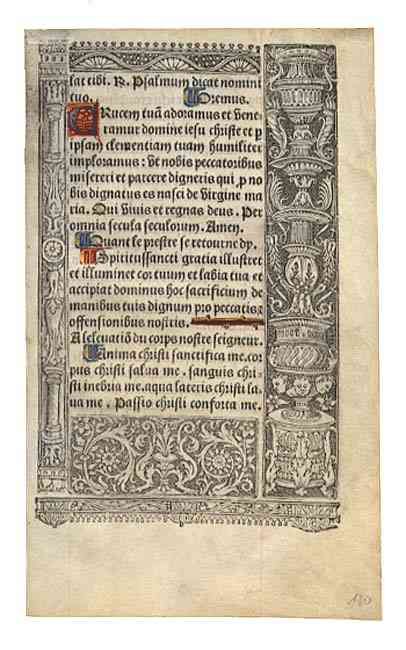 lat tibi. R. Psalmum dicat nomini
tuo. Oremus.
CRucem tuã adoramus et vene
ramur domine iesu christe et p
ipsam clementiam tuam humiliter
imploramus: Ut nobis peccatoribus
misereri et parcere digneris qui p no
bis dignatus es nasci de virgine ma
ria. Qui viuis et regnas deus. Per
omnia secula seculorum. Amen.
Quant le prestre se retourne dy.
Spiritussancti gratia illustret
et illuminet cor tuum et labia tua et
accipiat dominus hoc sacrificium de
manibus tuis dignum pro peccatis &
offensionibus nostris.
A seleuatiõ du corps nostre seigneur.
Anima christi sanctifica me. cor
pus christi salua me. sanguis chri-
sti inebria me. aqua lateris christi la
ua me. Passio christi conforta me.